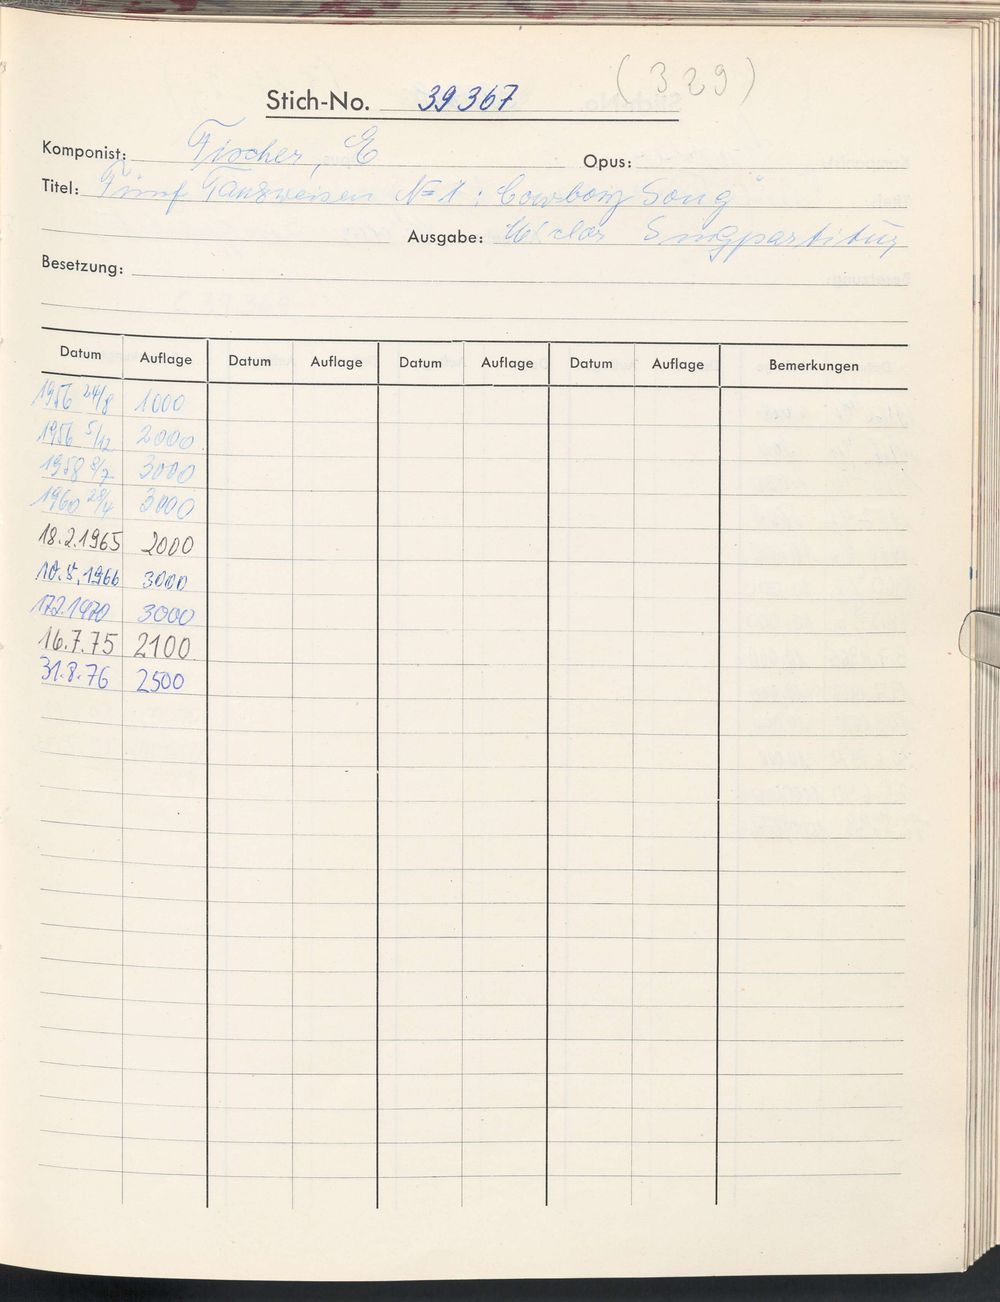 (329)
Stich-No. 39367
Komponist: Fischer, E
Opus:
Titel: Fünf Tanzweisen N=1: Cowboy Song
Ausgabe: Singpartitur
Besetzung:
Datum Auflage Datum Auflage Datum Auflage Datum Auflage Bemerkungen
1956 24/8 1000
1956 5/12 2000
1958 8/7 3000
1960 28/4 3000
18.2.1965 2000
10.5.1966 3000
17.2.1970 3000
16.7.75 2100
31.8.76 2500